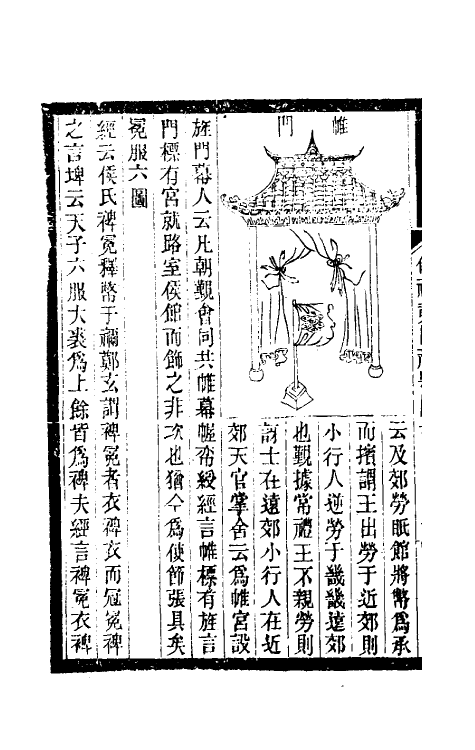 帷門
云及郊勞眂館將幣爲承
而擯謂王出勞于近郊則
小行人逆勞于畿畿遠郊
也覲據常禮王不親勞則
訝士在遠郊小行人在近
郊天官掌舍云爲帷宮設
旌門幕人云凡朝覲會同共帷幕幄帟綬經言帷標有旌言
門標有宮就路室侯館而飾之非次也猶今爲使飾張具矣
冕服六圖
經云侯氏裨冕釋幣于禰鄭玄謂裨冕者衣裨衣而冠冕裨
之言埤云天子六服大裘爲上餘皆爲裨夫經言裨冕衣裨